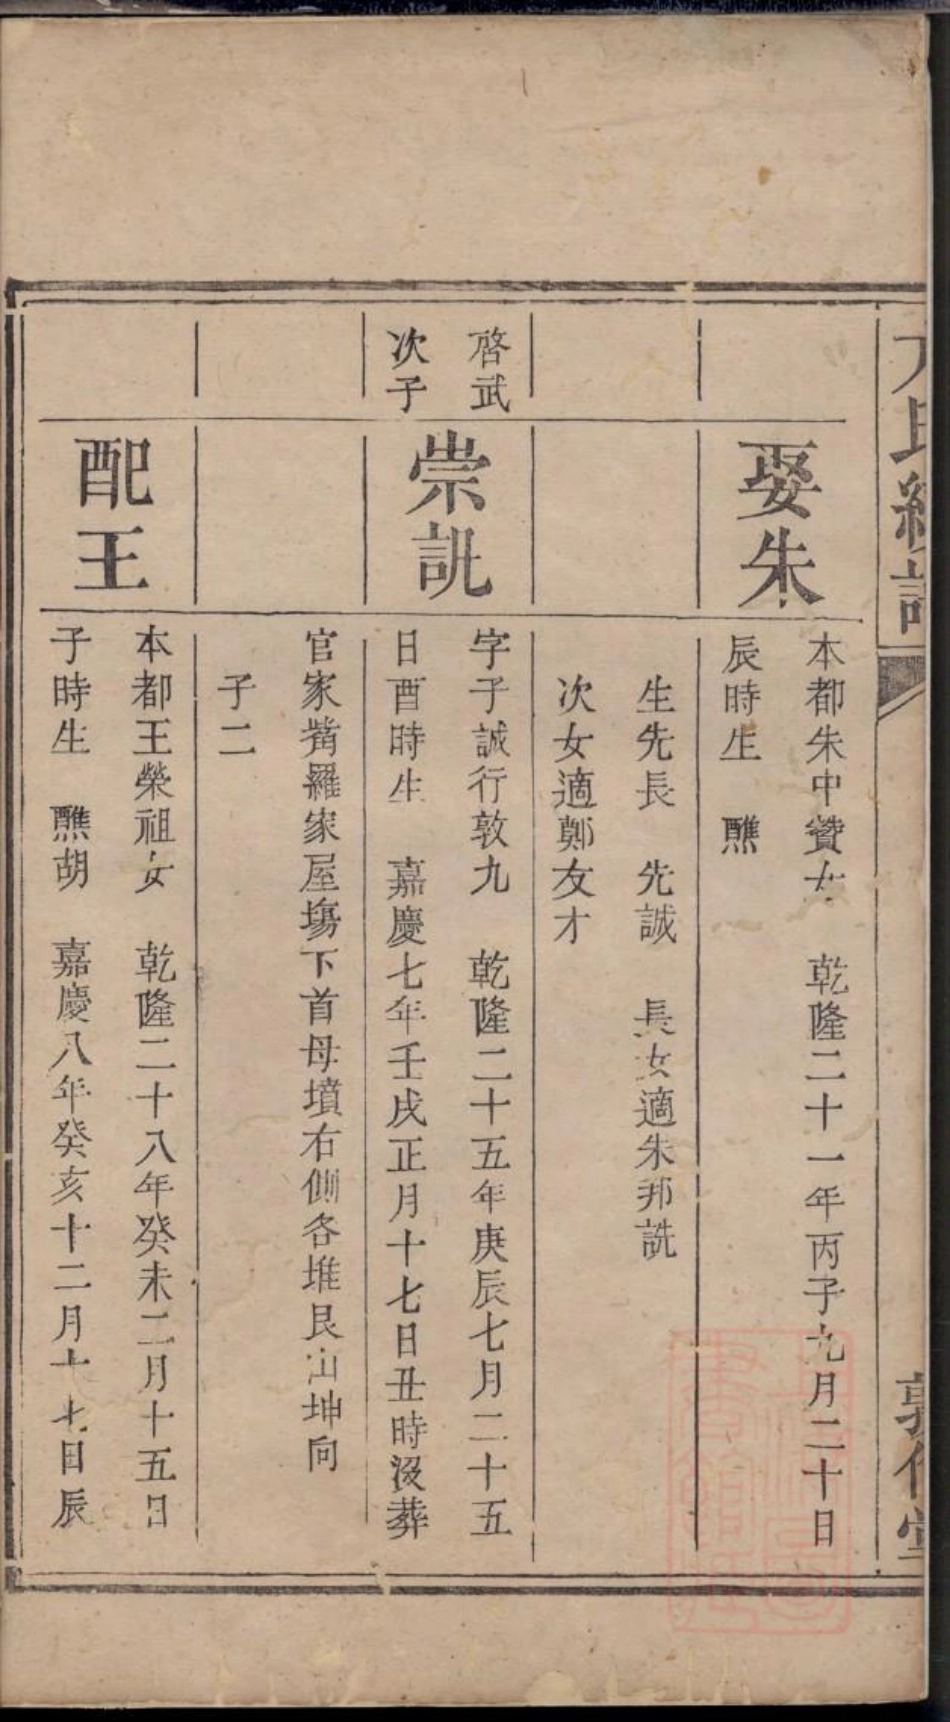 氏續譜
敦倫堂
娶朱
本都朱中贊女 乾隆二十一年丙子九月二十日
辰時生 醮
生先長 先誠 長女適朱邦詵
次女適鄭友才
啓武
次子
崇訛
字子誠行敦九 乾隆二十五年庚辰七月二十五
日酉時生 嘉慶七年壬戌正月十七日丑時沒葬
官家觜羅家屋塲下首母墳右側各堆艮山坤向
子二
配王
本都王榮祖女 乾隆二十八年癸未二月十五日
子時生 醮胡 嘉慶八年癸亥十二月十七日辰